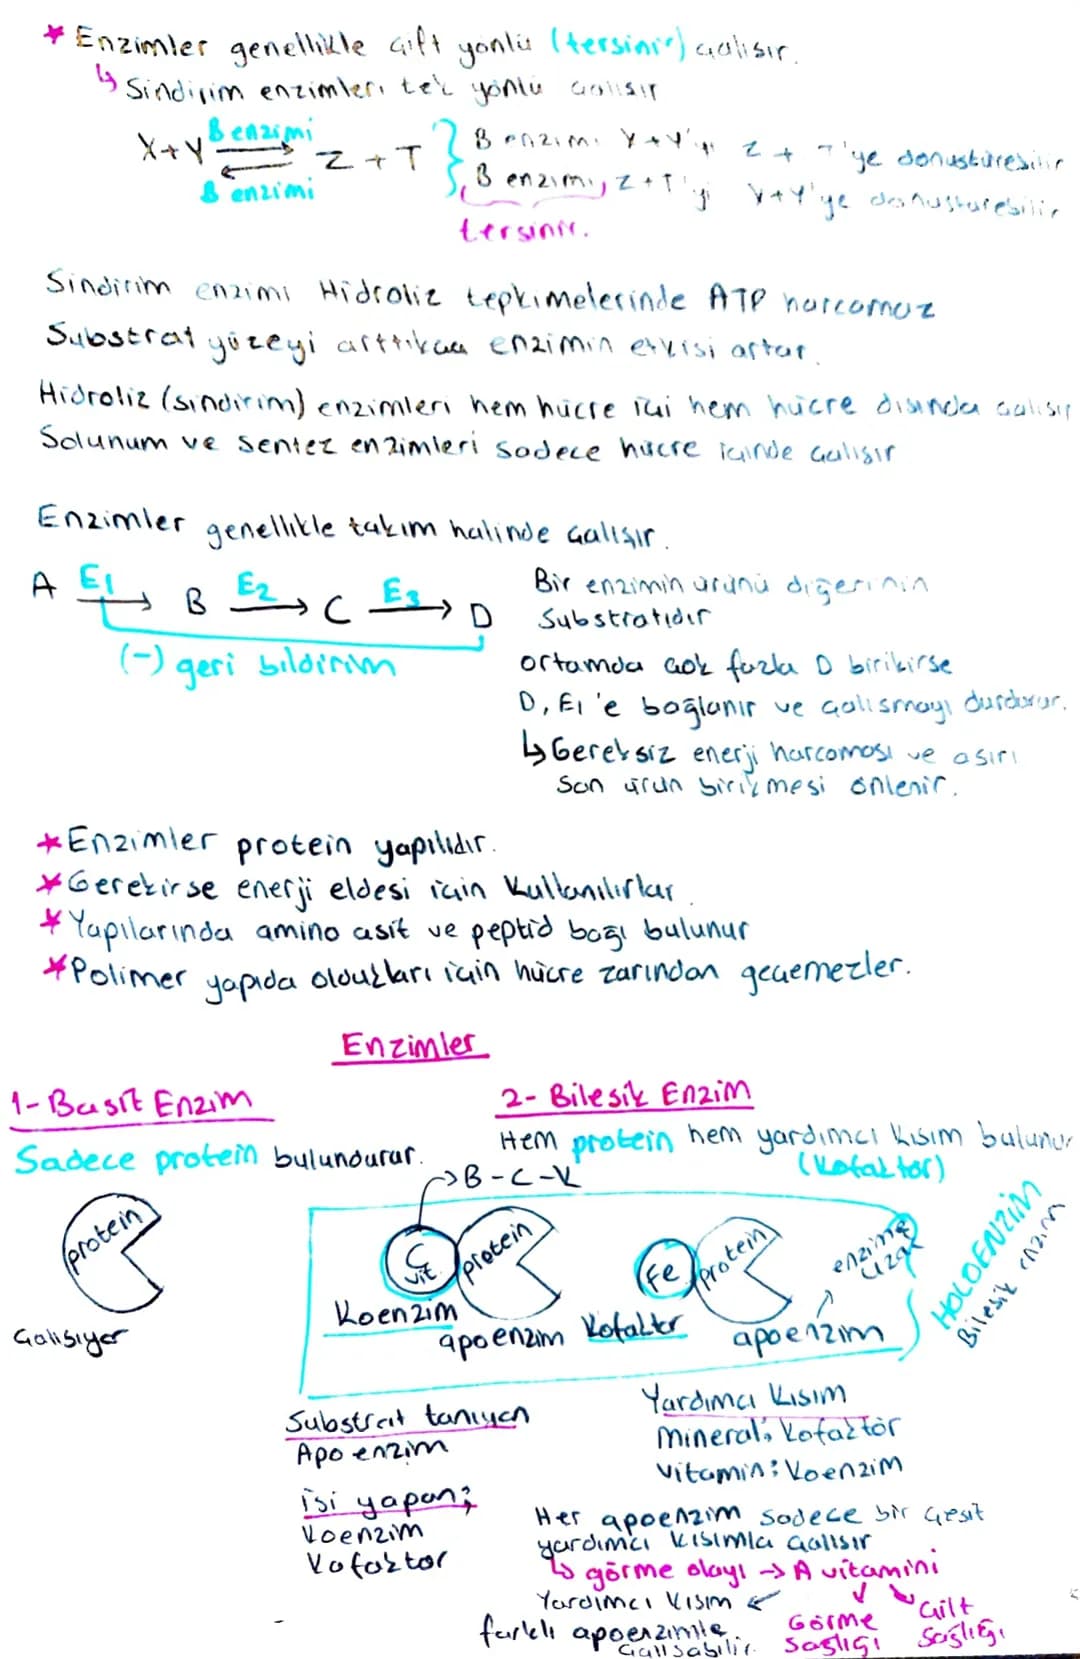 * Enzimler genellikle çift yönlü (tersinir) çalışır.
↳ Sindirim enzimleri tek yönlü çalışır
X+Y B enzimi ⇌ B enzimi Z + T
B enzimi X+Y'yi Z + T'ye dönüştürebilir
B enzimi, Z+T'yi X+Y'ye dönüştürebilir
tersinir.
Sindirim enzimi Hidroliz tepkimelerinde ATP harcamaz
Substrat yüzeyi arttıkça enzimin etkisi artar.
Hidroliz (sindirim) enzimleri hem hücre içi hem hücre dışında çalışır
Solunum ve sentez enzimleri sadece hücre içinde çalışır
Enzimler genellikle takım halinde çalışır.
A E1 → B E2 → C E3 → D
(-) geri bildirim
Bir enzimin ürünü diğerinin
Substratıdır
ortamda çok fazla D birikirse
D, E1'e bağlanır ve çalışmayı durdurur.
↳ Gereksiz enerji harcaması ve aşırı
Son ürün birikmesi önlenir.
* Enzimler protein yapılıdır.
* Gerekirse enerji eldesi için kullanılırlar
* Yapılarında amino asit ve peptid bağı bulunur
* Polimer yapıda oldukları için hücre zarından geçemezler.
Enzimler
1- Basit Enzim
Sadece protein bulundurur.
protein
Çalışıyor
2- Bileşik Enzim
Hem protein hem yardımcı kısım bulunur
(Kofaktör)
→ B-C-K
C vit.
protein
Koenzim
apoenzim
Fe
protein
Kofaktör
apoenzim
enzime
HOLOENZİM
Bileşik enzim
Substrat tanıyan
Apoenzim
işi yapan;
Koenzim
Kofaktör
Yardımcı Kısım
mineral; Kofaktör
vitamin: Koenzim
Her apoenzim sadece bir çeşit
yardımcı kısımla çalışır
↳ görme olayı → A vitamini
Görme
sağlığı
Cilt
Sağlığı
Yardımcı kısım
farklı apoenzimle
çalışabilir.